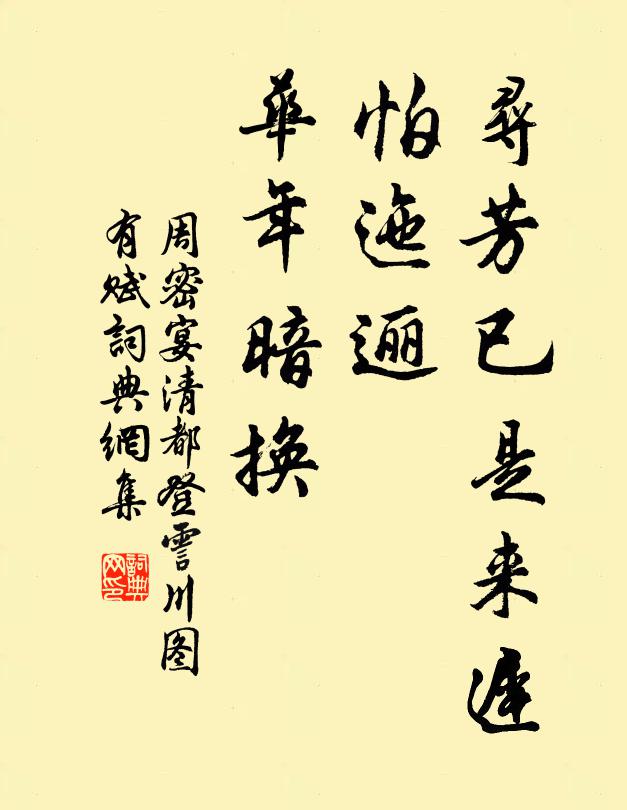 尋芳已是来遲
怕迤逦
華年暗换
周密宴清都登霅川图
有赋詞典網集
詞典网印